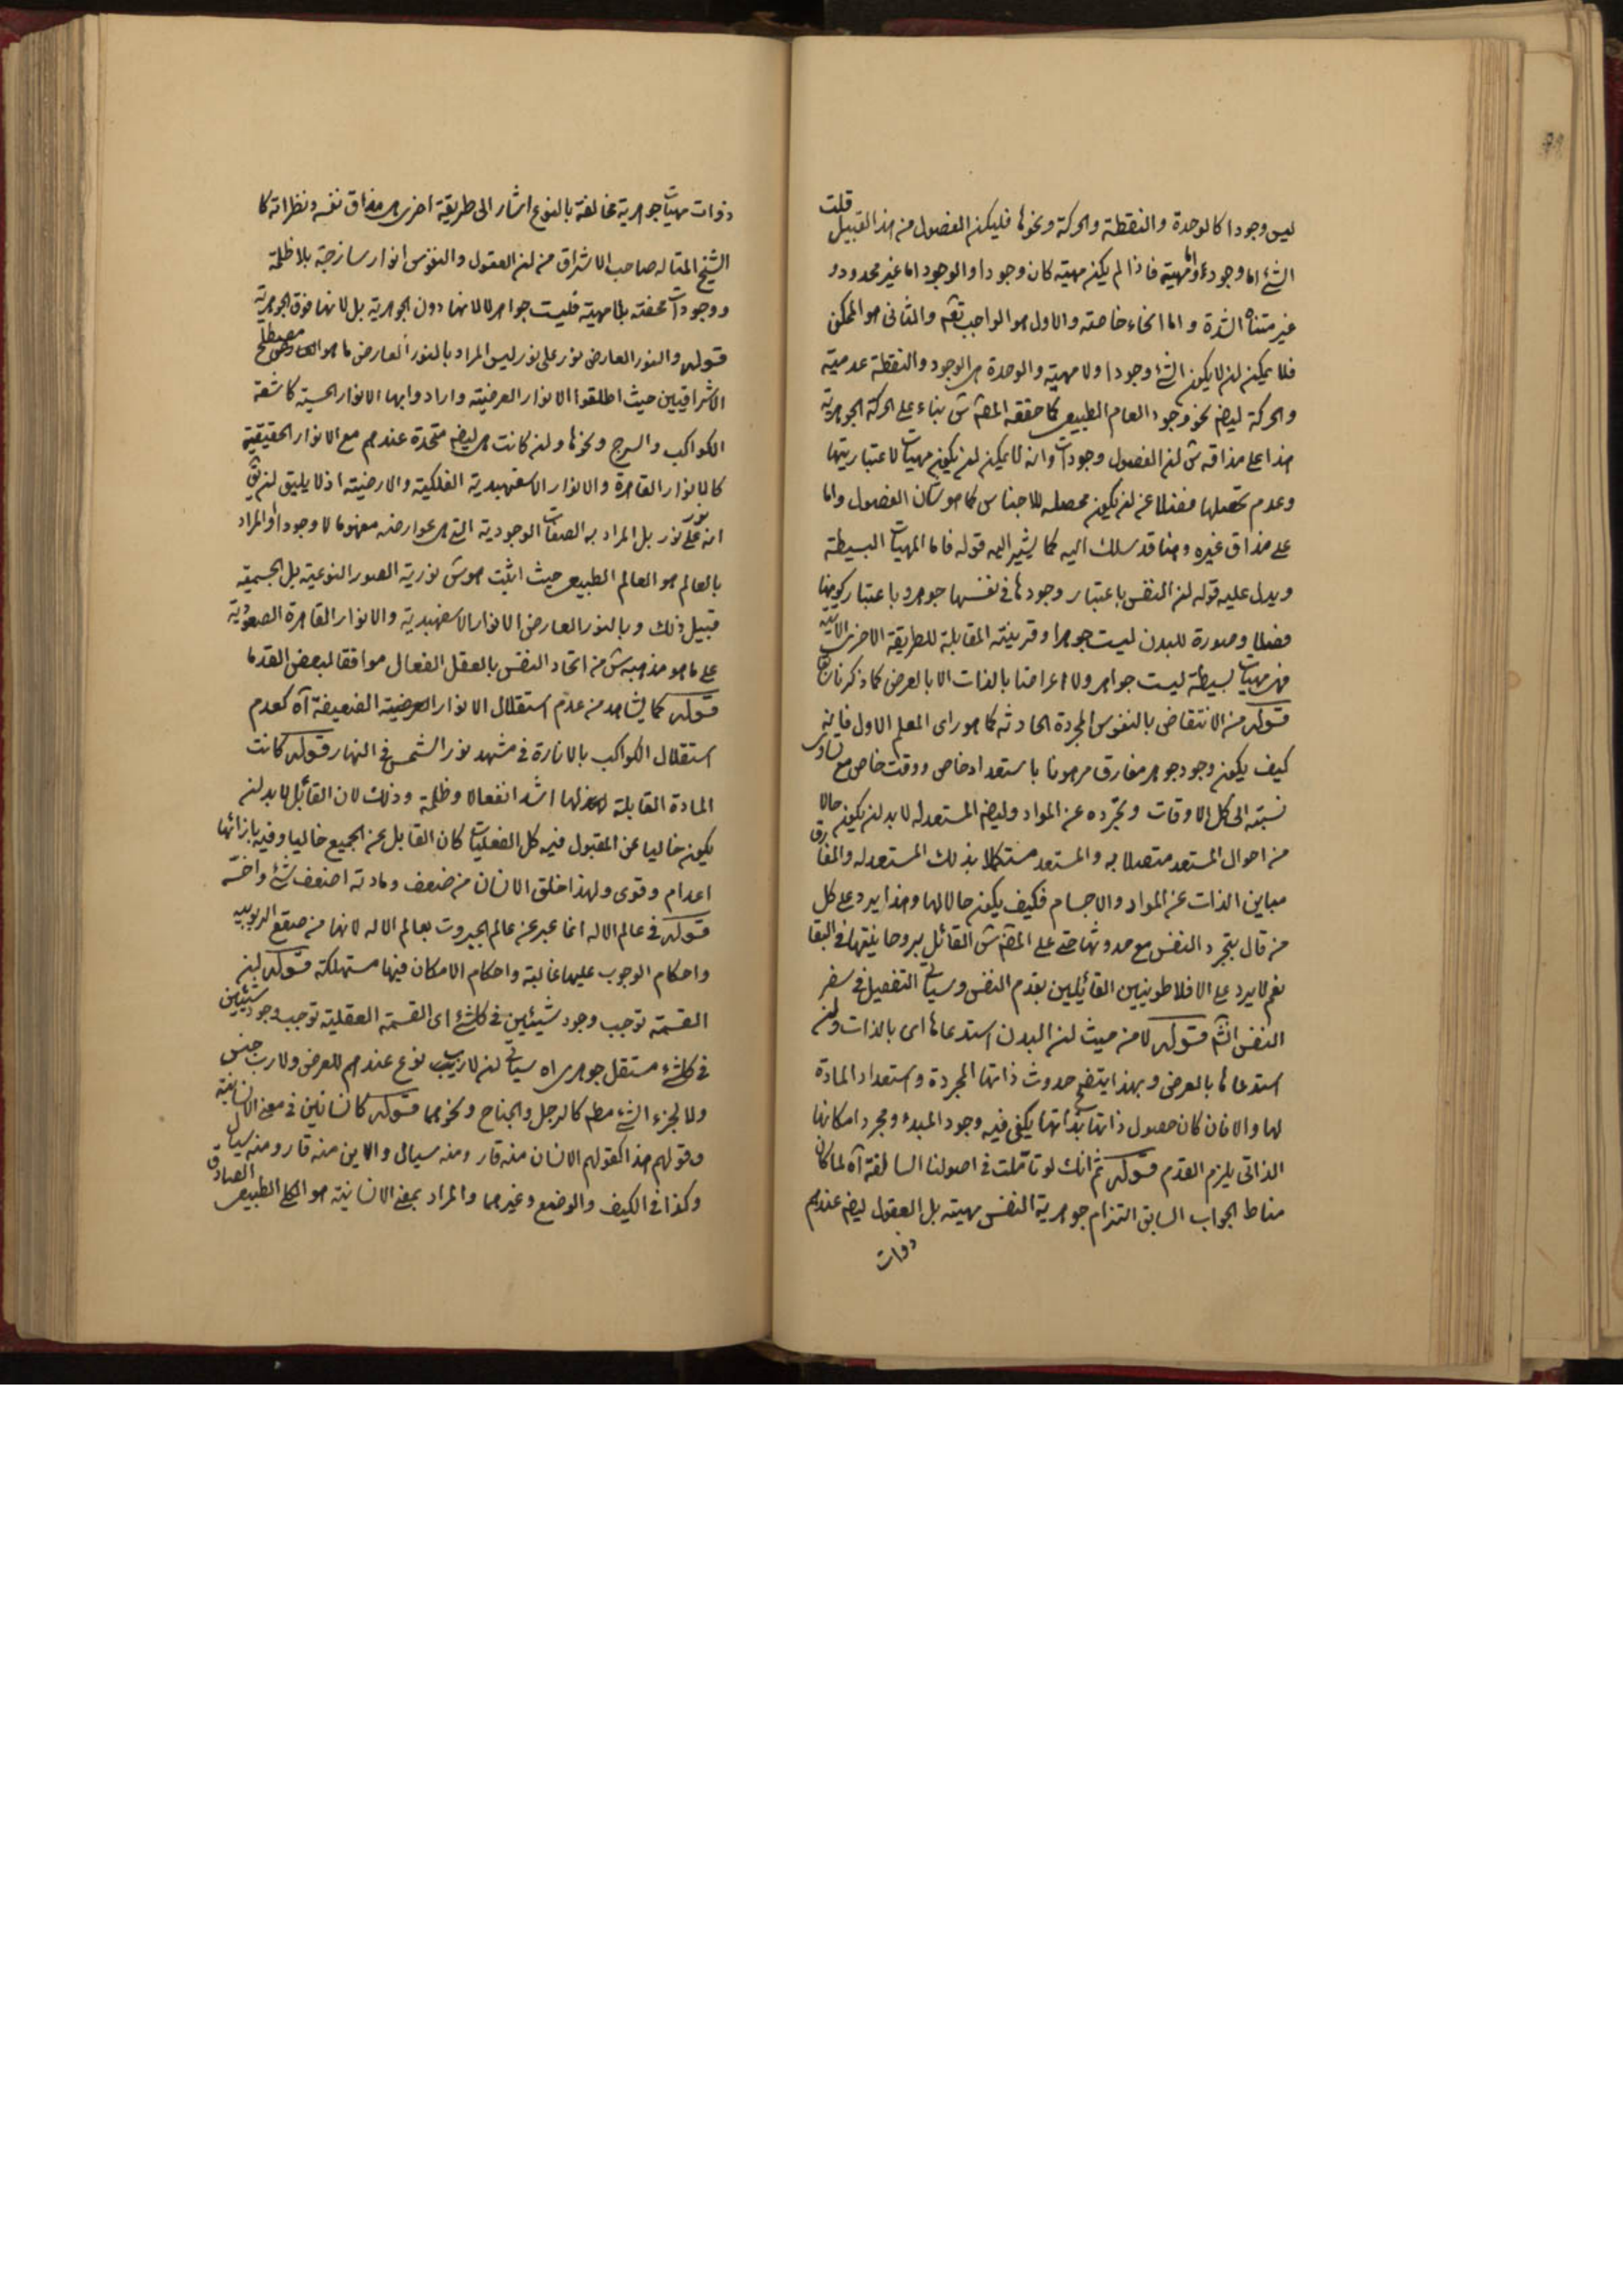 ليس وجودا كالوحدة والنقطة والحركة ونحوها فليكن الفصول من هذا القبيل قلت
الشئ اما وجود واما مهية فاذا لم يكن مهية كان وجودا والوجود اما غير محدود و
غير متناه الشدة واما انحاء خاصة والاول هو الواجب تعم والثانى هو الممكن
فلا يمكن ان لا يكون الشئ وجودا ولا مهية والوحدة هى الوجود والنقطة عدمية
والحركة ايضا نحو وجود العام الطبيعى كما حققه المصنف س بناء على الحركة الجوهرية
هذا على مذاقه س ان الفصول وجودات وانه لا يمكن ان يكون مهيات لاعتباريتها
وعدم تحصلها فضلا عن ان يكون محصله للاجناس كما هو شان الفصول واما
على مذاق غيره وهنا قد سلك اليه كما يشير اليه قوله فاما المهيات البسيطة
ويدل عليه قوله ان النفس باعتبار وجودها فى نفسها جوهر وباعتبار كونها
فصلا وصورة للبدن ليست جوهرا وقرينته المقابلة للطريقة الاخرى الاتية
فهى مهيات بسيطة ليست جواهر ولا اعراضا بالذات الا بالعرض كما ذكرنا
قوله من الانتقاض بالنفوس المجردة الحادثة كما هو راى المعلم الاول فانه
كيف يكون وجود جوهر مفارق مرهونا باستعداد خاص ووقت خاص مع تساوى
نسبته الى كل الاوقات وتجرده عن المواد وايضا المستعد له لابد ان يكون حالا
من احوال المستعد متصلا به والمستعد مستكملا بذلك المستعد له والمفارق
مباين الذات عن المواد والاجسام فكيف يكون حالا لها وهذا يرد على كل
من قال بتجرد النفس مع حدوثها حتى على المصنف س القائل بروحانيتها فى البقا
نعم لا يرد على الافلاطونيين القائلين بقدم النفس وسياتى التفصيل فى سفر
النفس انشم قوله لا من حيث ان البدن استدعاها اى بالذات وان
استدعاها بالعرض وبهذا يتضح حدوث ذاتها المجردة واستعداد المادة
لها والا فان كان حصول ذاتها بذاتها يكفى فيه وجود المبدء ومجرد امكانها
الذاتى يلزم القدم قوله ثم انك لو تأملت فى اصولنا السالفة آه لما كان
مناط الجواب السابق التزام جوهرية النفس مهيته بل العقول ايضا عندهم
ذوات
ذوات مهيات جوهرية مخالفة بالنوع اشار الى طريقة اخرى هى مذاق نفسه ونظرائه كا
الشيخ المتاله صاحب الاشراق من ان العقول والنفوس انوار ساذجة بلا ظلمة
ووجودات محضة بلا مهية فليست جواهر لا لانها دون الجوهرية بل لانها فوق الجوهرية
قوله والنور العارض نور على نور ليس المراد بالنور العارض ما هو مصطلح
الاشراقيين حيث اطلقوا الانوار العرضية وارادوا بها الانوار الحسية كاشعة
الكواكب والسرج ونحوها وان كانت هى ايضا متحدة عندهم مع الانوار الحقيقية
كالانوار القاهرة والانوار الاسفهبدية الفلكية والارضية اذ لا يليق ان يق
انه نور على نور بل المراد به الصفات الوجودية التى هى عوارض مفهوما لا وجودا او المراد
بالعالم هو العالم الطبيعى حيث اثبت هو س نورية الصور النوعية بل الجسمية
قبيل ذلك وبالنور العارض الانوار الاسفهبدية والانوار القاهرة الصعودية
على ما هو مذهبه س من اتحاد النفس بالعقل الفعال موافقا لبعض القدما
قوله كما يشاهد من عدم استقلال الانوار العرضية الضعيفة آه كعدم
استقلال الكواكب بالانارة فى مشهد نور الشمس فى النهار قوله كانت
المادة القابلة لها اشد انفعالا وظلمة وذلك لان القابل لابد ان
يكون خاليا عن المقبول فيه كل الفعليات كان القابل عن الجميع خاليا وفيه بازائها
اعدام وقوى ولهذا خلق الانسان من ضعف ومادته اضعف شئ واخسه
قوله فى عالم الاله انما عبر عن عالم الجبروت بعالم الاله لانها من صقع الربوبيه
واحكام الوجوب عليها غالبة واحكام الامكان فيها مستهلكة قوله ان
القسمة توجب وجود شيئين فى كل شئ اى القسمة العقلية توجب وجود شيئين
فى كل شئ مستقل جوهرى اه سياتى ان لا رب نوع عندهم للعرض ولا رب جنس
ولا لجزء الشئ مطم كالرجل والجناح ونحوهما قوله كانسانين فى معنى الانسانية
وقولهم هذا كقولهم الانسان منه قار ومنه سيال والاين منه قار ومنه سيال
وكذا فى الكيف والوضع وغيرهما والمراد بمعنى الانسانية هو الكلى الطبيعى الصادق